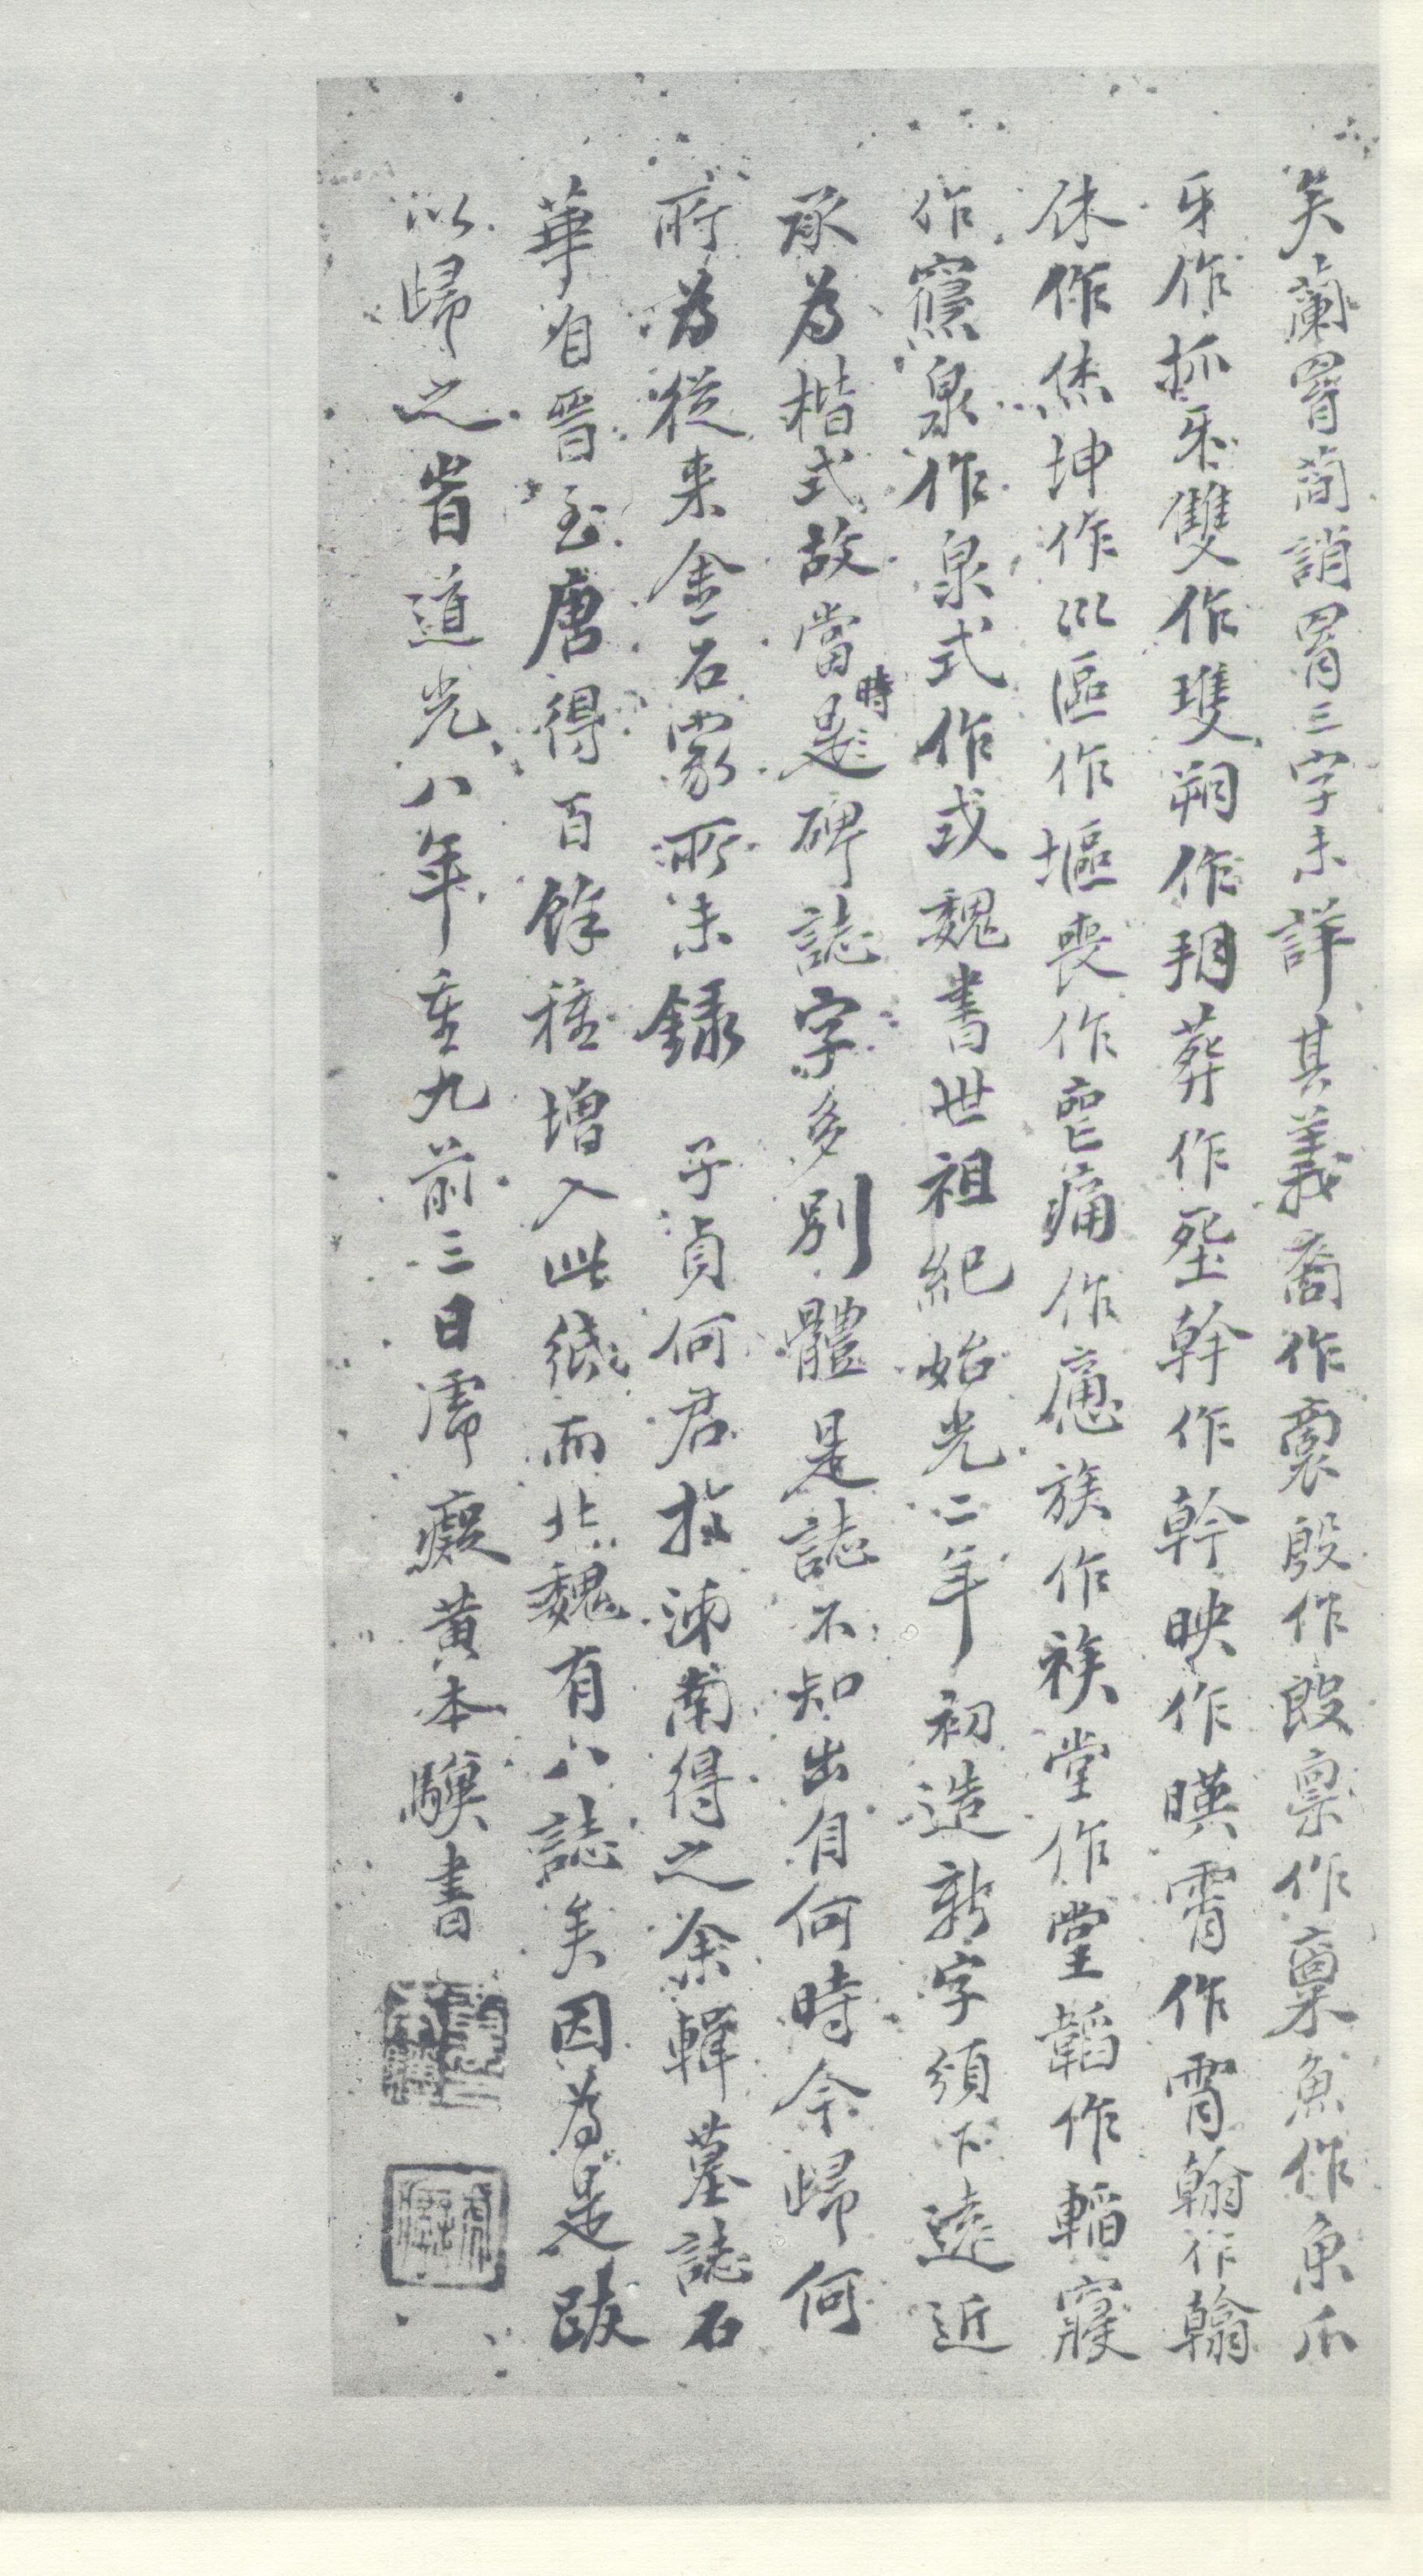 矣蘭罶蔄誚罶三字未詳其義裔作裛殷作𣪘稟作稾魚作臭爪
牙作抓𤘈雙作䨇朔作𦙶葬作塟幹作幹映作暎霄作霄翰作翰
休作烋坤作巛區作塸喪作䘮痛作慂族作袟堂作堂韜作轁寢
作寢泉作泉式作式魏書世祖紀始光二年初造新字頒下遠近
承為楷式故當時是碑誌字多別體是誌不知出自何時今歸何
所為從来金石家所未錄 子貞何君於沛南得之余輯墓誌石
華自晉至唐得百餘種增入此紙而北魏有八誌矣因為是跋
以歸之旹道光八年重九前三日虎癡黄本驥書